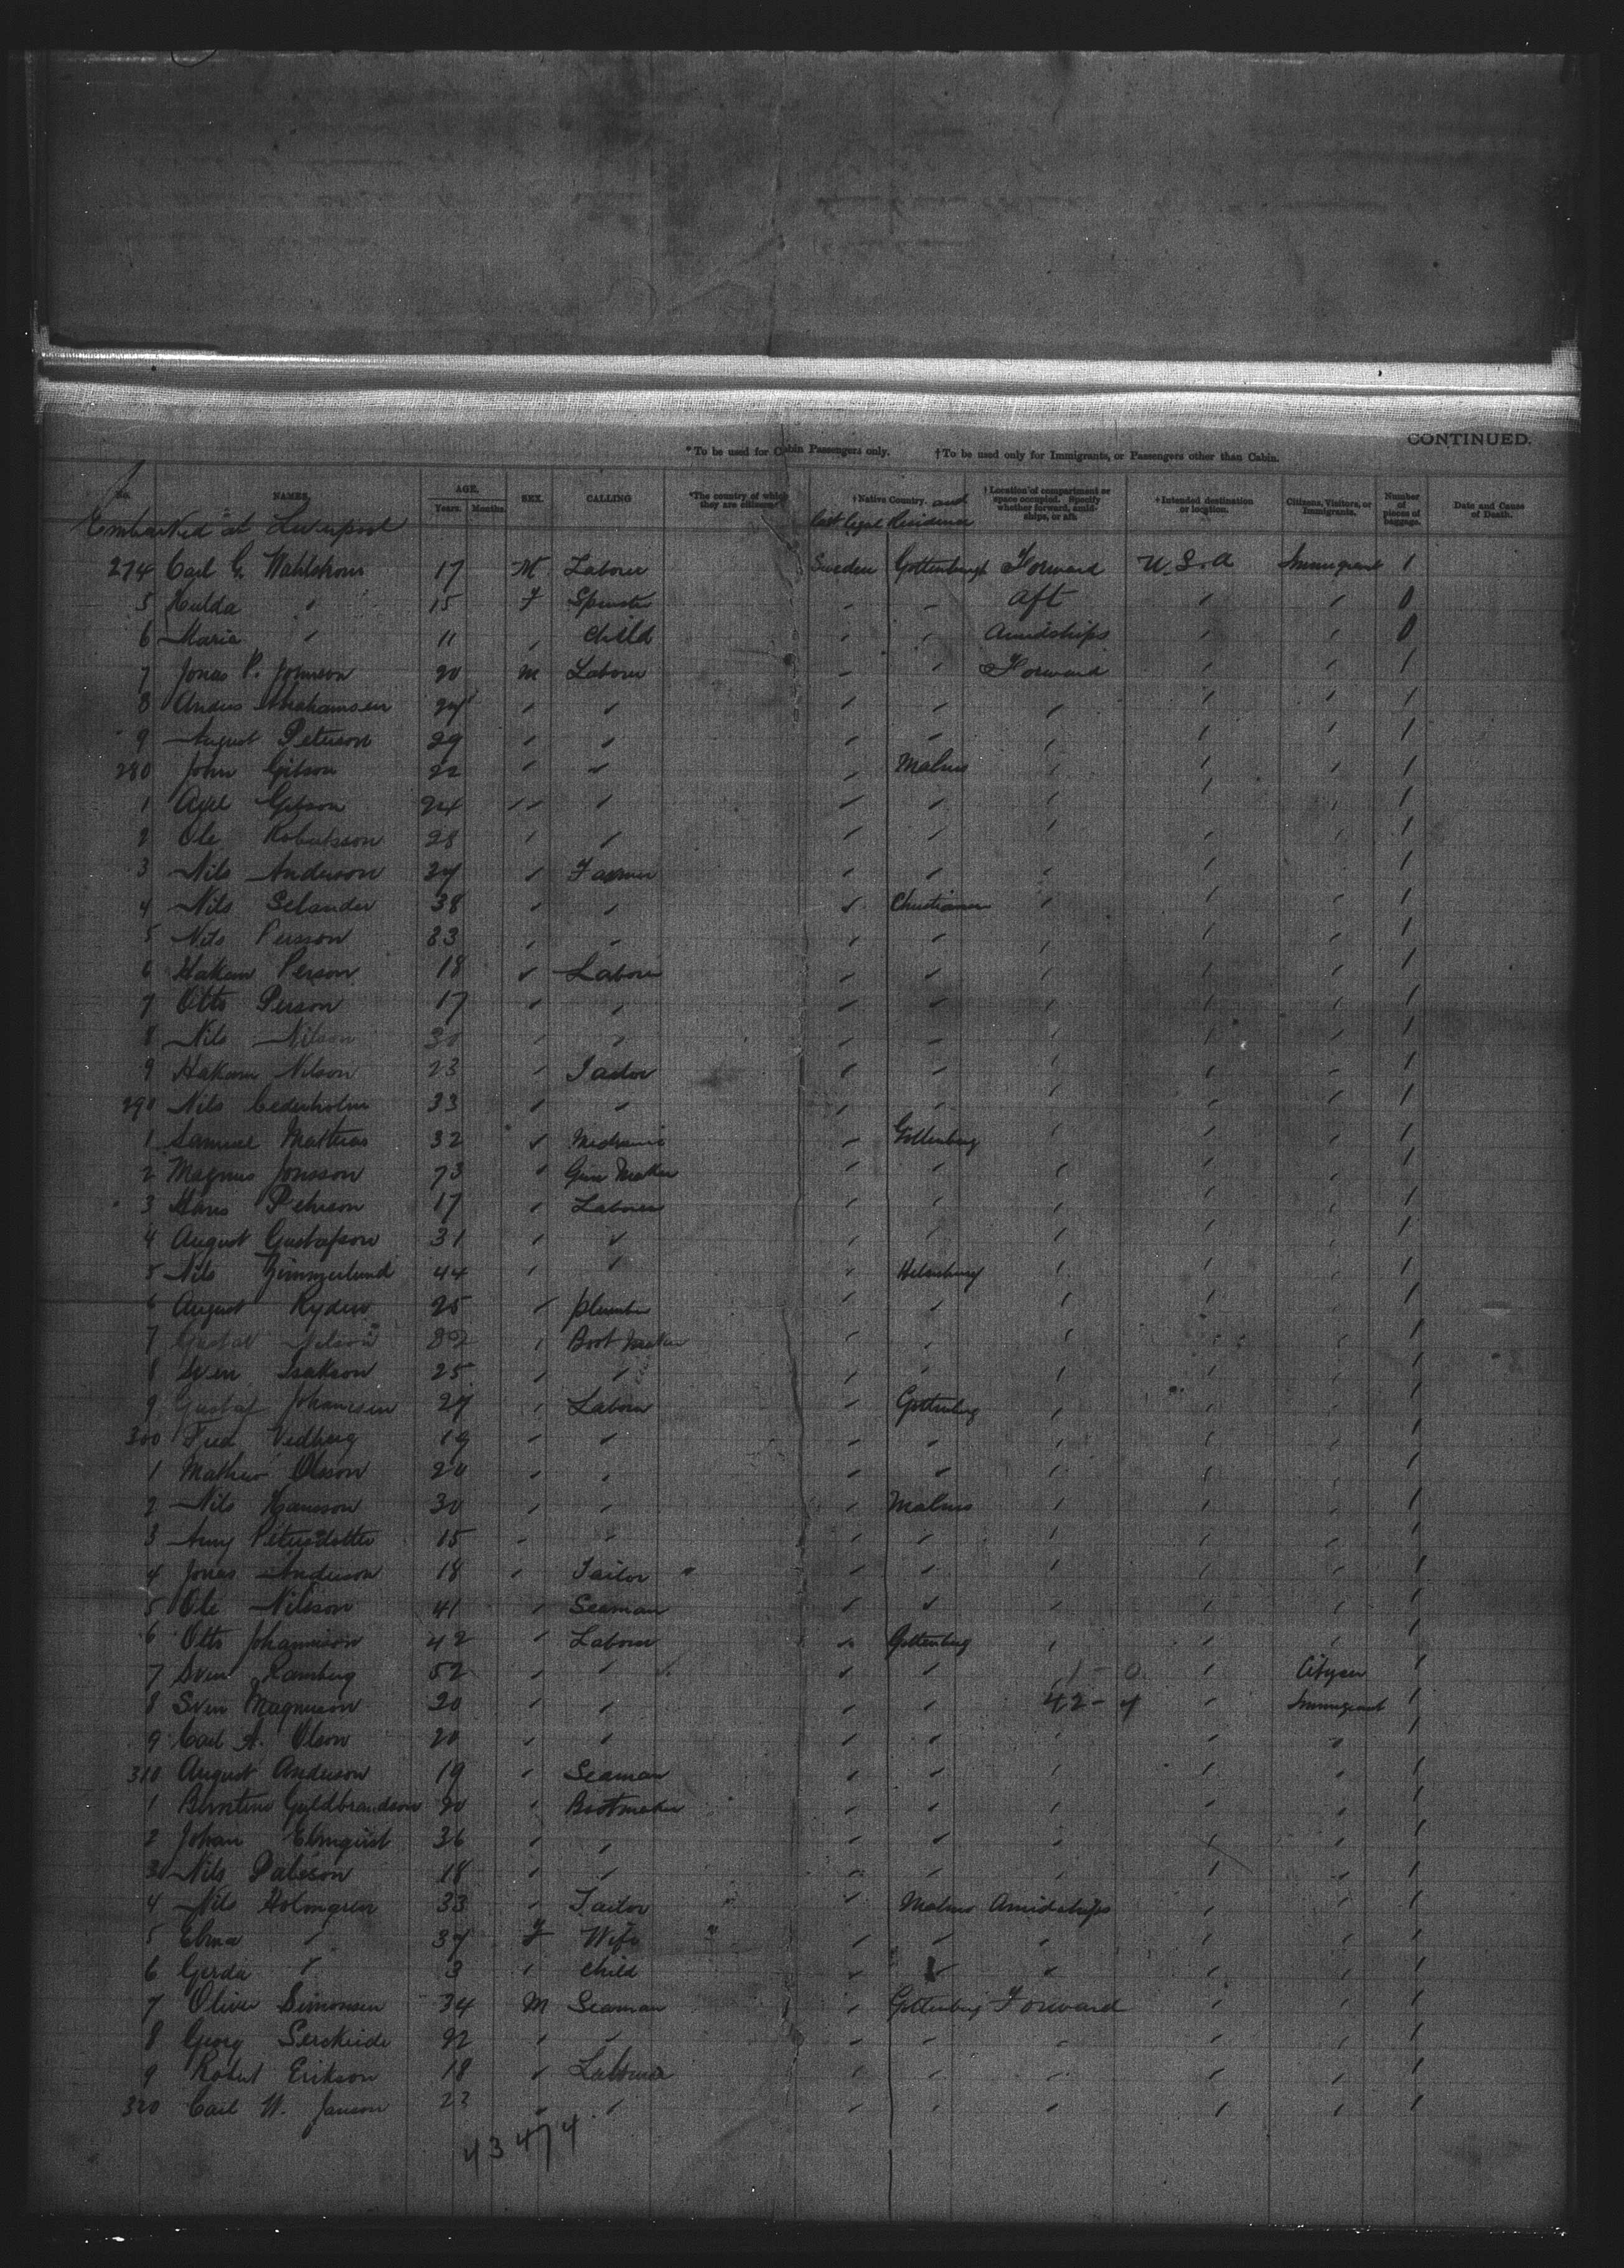 CONTINUED.
*To be used for Cabin Passengers only. †To be used only for Immigrants, or Passengers other than Cabin.
No. NAMES. AGE. Years. Months. SEX. CALLING *The country of which they are citizens. †Native Country. and last legal Residence †Location of compartment or space occupied. Specify whether forward, amidships, or aft. †Intended destination or location. Citizens, Visitors, or Immigrants. Number of pieces of baggage. Date and Cause of Death.
Embarked at Liverpool
274 Carl G. Wahlstrom 17 M Laborer Sweden Gottenburgh Forward U.S.A Immigrant 1
5 Hulda " 15 F Spinster " " Aft " " 0
6 Maria " 11 " Child " " Amidships " " 0
7 Jonas P. Johnson 20 M Laborer " " Forward " " 1
8 Andus Abrahamsen 24 " " " " " " " 1
9 August Peterson 29 " " " " " " " 1
280 John Gibson 22 " " " Malmo " " " 1
1 Axel Gibson 24 " " " " " " " 1
2 Ole Robertsson 28 " " " " " " " 1
3 Nils Anderson 24 " Farmer " " " " " 1
4 Nils Selander 38 " " " " " " 1
5 Nils Persson 33 " " " " " " " 1
6 Hakan Person 18 " Laborer " " " " " 1
7 Otto Person 17 " " " " " " " 1
8 Nils Nilson 30 " " " " " " " 1
9 Hakan Nilson 23 " Tailor " " " " " 1
290 Nils Cederholm 33 " " " " " " " 1
1 Samuel Mattias 32 " Mechanic " Gottenburg " " " 1
2 Magnus Jonsson 73 " Gun Maker " " " " " 1
3 Hans Peterson 17 " Laborer " " " " " 1
4 August Gustafson 31 " " " " " " " 1
5 Nils Zimmerlund 44 " " " Helsinburg " " " 1
6 August Ryden 25 " plumber " " " " " 1
7 Gustav Nelson " Boot Maker " " " " " 1
8 Sven Isakson 25 " " " " " " " 1
9 Gustaf Johansen 27 " Laborer " Gottenburg " " " 1
300 Fred Vedberg 19 " " " " " " " 1
1 Mathew Olsson 20 " " " " " " " 1
2 Nils Hansson 30 " " " Malmo " " " 1
3 Amy Petersdotter 15 " " " " " " " 1
4 Jonas Anderson 18 " Tailor " " " " " " 1
5 Ole Nilsson 41 " Seaman " " " " " 1
6 Otto Johannison 42 " Laborer " Gottenburg " " " 1
7 Sven Ramberg 52 " " " " 1 - 0 " Citizen 1
8 Sven Magnuson 20 " " " " 42 - 4 " Immigrant 1
9 Carl A. Olson 20 " " " " " " 1
310 August Anderson 19 " Seaman " " " " " 1
1 Guldbrandson 20 " Bootmaker " " " " " 1
2 Johan Elmquist 36 " " " " " " " 1
3 Nils Palsson 18 " " " " " " " 1
4 Nils Holmgren 33 " Tailor " " Malmo Amidships " " 1
5 Elma " 34 F Wife " " " " " " 1
6 Gerda " 3 " Child " " " " " 1
7 Oliver Simonsen 34 M Seaman " Gottenburg Forward " " 1
8 Georg 22 " " " " " " " 1
9 Robert Erikson 18 " Laborer " " " " " 1
320 Carl W. Janson 23 " " " " " " " 1
43 474